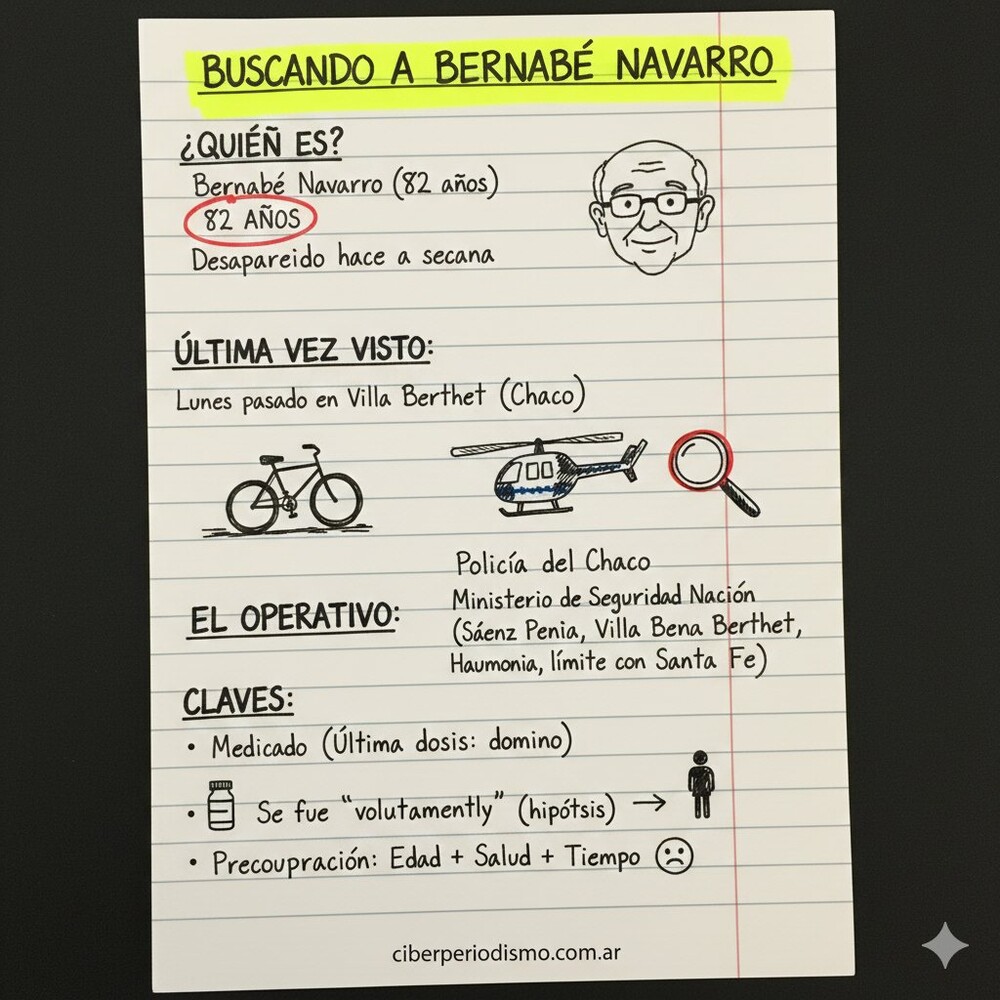 BUSCANDO A BERNABÉ NAVARRO
¿QUIÉÑ ES?
Bernabé Navarro (82 años)
82 AÑOS
Desapareido hace a secana
ÚLTIMA VEZ VISTO:
Lunes pasado en Villa Berthet (Chaco)
EL OPERATIVO:
Policía del Chaco
Ministerio de Seguridad Nación
(Sáenz Penia, Villa Bena Berthet,
Haumonia, límite con Santa Fe)
CLAVES:
• Medicado (Última dosis: domino)
• Se fue “volutamently” (hipótsis) →
• Precoupración: Edad + Salud + Tiempo
ciberperiodismo.com.ar